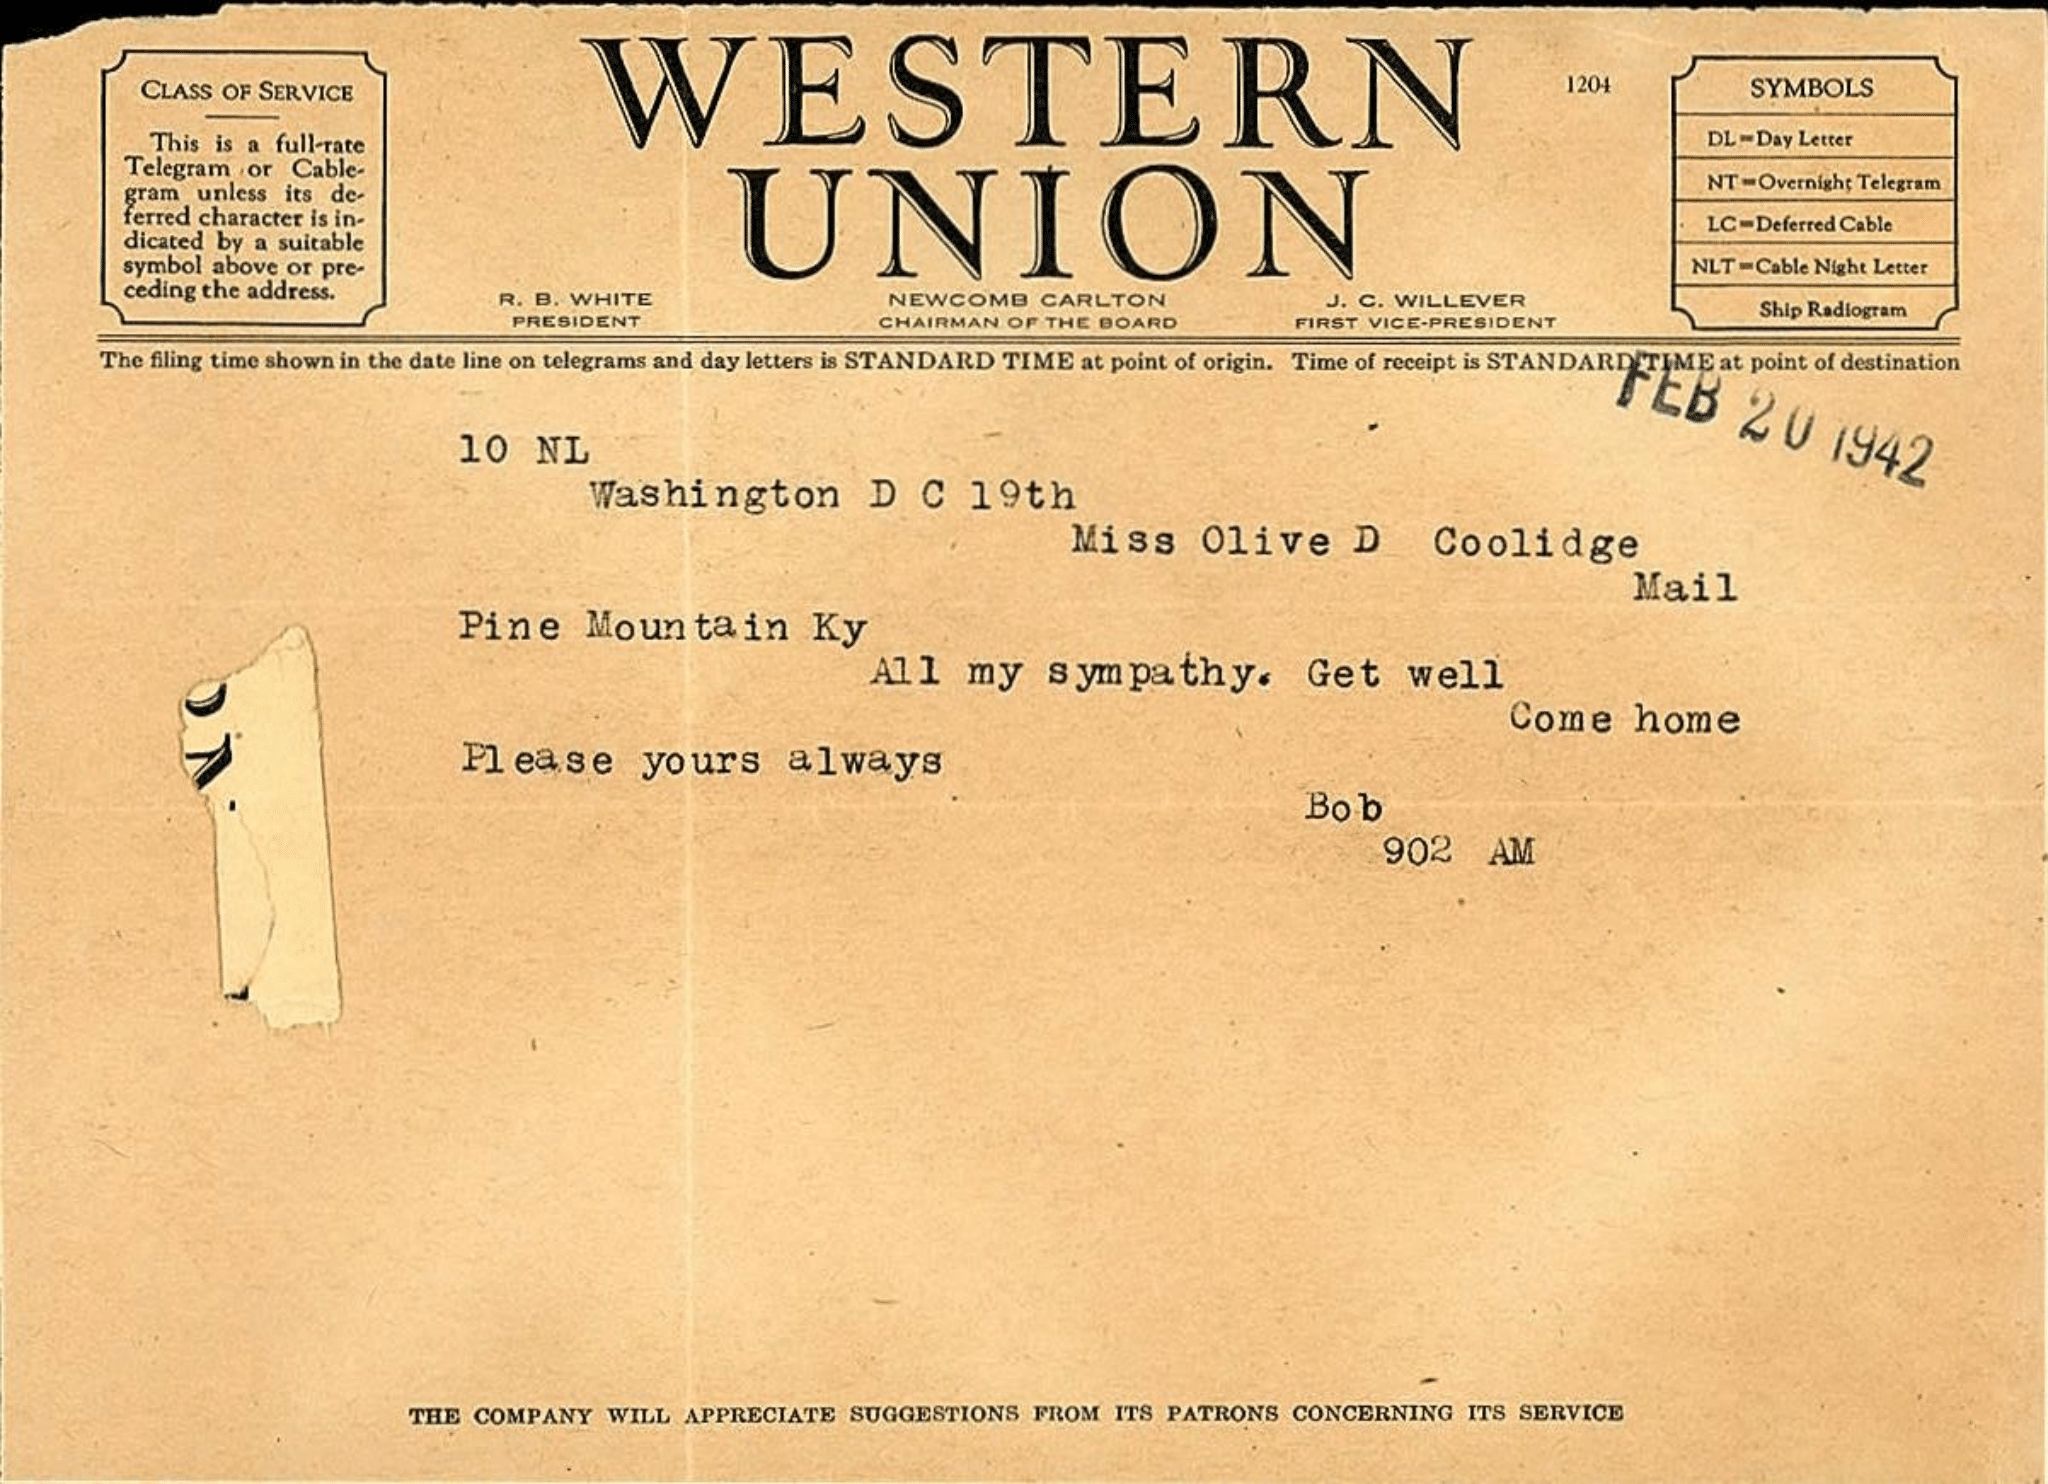 CLASS OF SERVICE
This is a full-rate
Telegram or Cable-
gram unless its de-
ferred character is in-
dicated by a suitable
symbol above or pre-
ceding the address.
WESTERN
UNION
1204
R. B. WHITE
PRESIDENT
NEWCOMB CARLTON
CHAIRMAN OF THE BOARD
J. C. WILLEVER
FIRST VICE-PRESIDENT
SYMBOLS
DL=Day Letter
NT=Overnight Telegram
LC=Deferred Cable
NLT=Cable Night Letter
Ship Radiogram
The filing time shown in the date line on telegrams and day letters is STANDARD TIME at point of origin. Time of receipt is STANDARD TIME at point of destination
FEB 20 1942
10 NL
Washington D C 19th
Miss Olive D Coolidge
Mail
Pine Mountain Ky
All my sympathy. Get well
Come home
Please yours always
Bob
902 AM
THE COMPANY WILL APPRECIATE SUGGESTIONS FROM ITS PATRONS CONCERNING ITS SERVICE